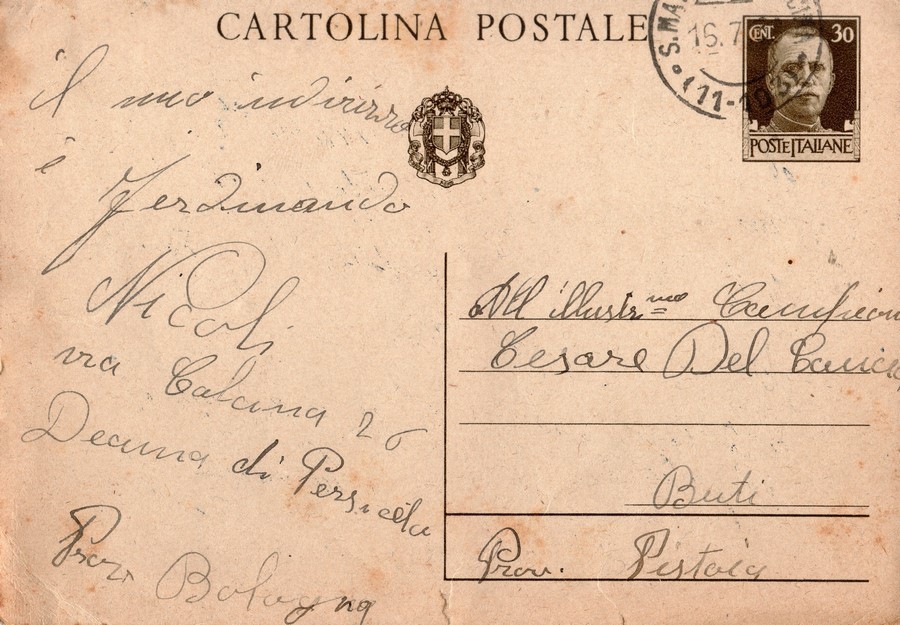 CARTOLINA POSTALE
S. MA
16.7
11-10
CENT. 30
POSTE ITALIANE
il mio indirizzo
è
Ferdinando
Nicoli
via Calcina 26
Decima di Persiceto
Prov Bologna
All'illustr.mo Campion
Cesare Del Canc
Buti
Prov. Pistoia